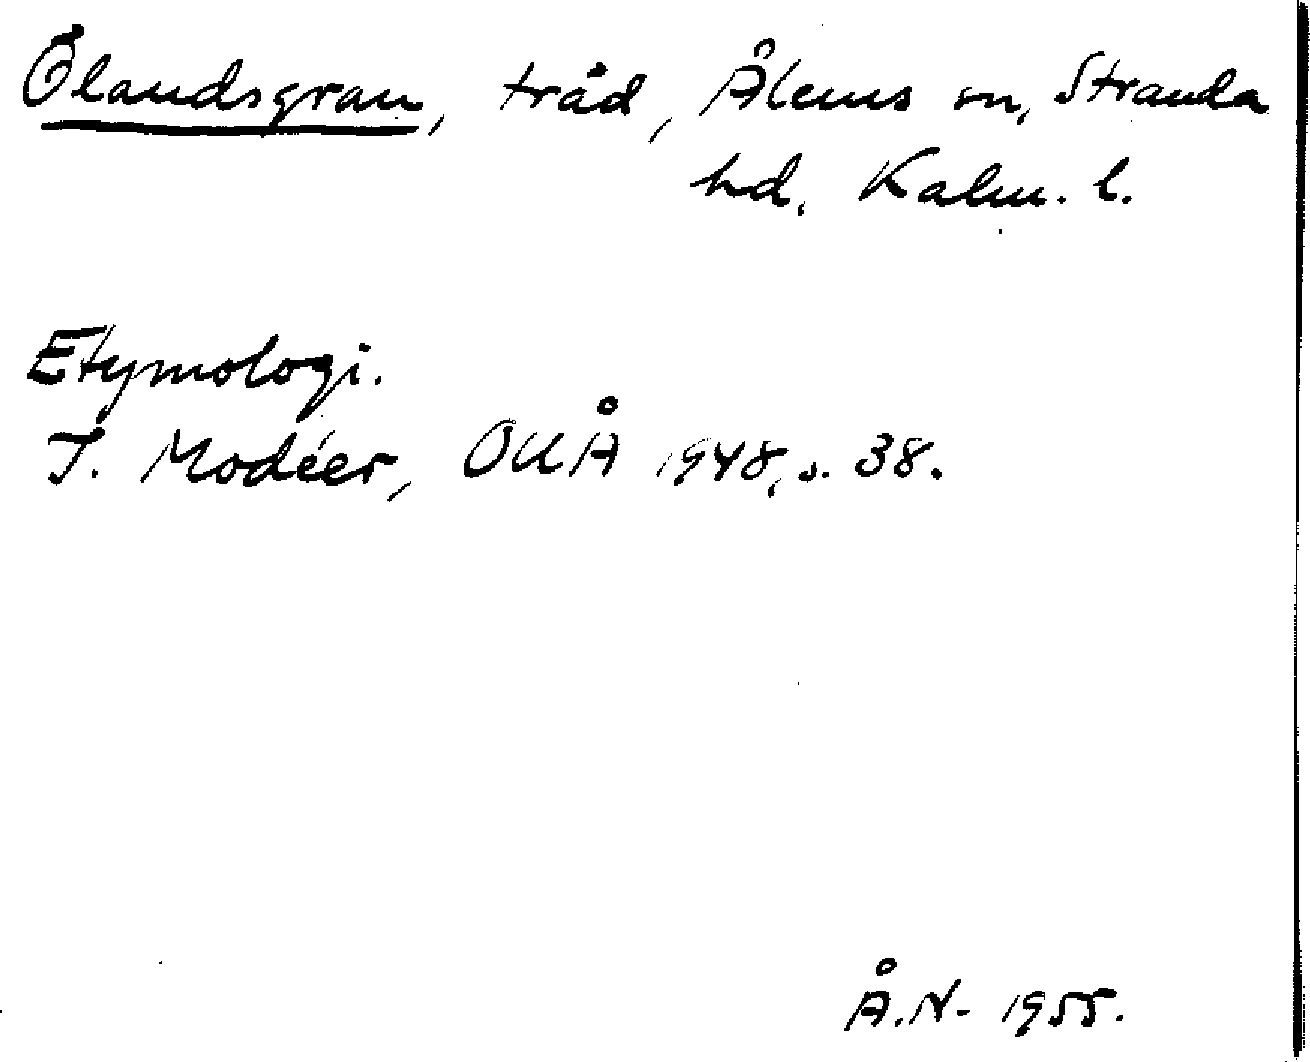 Ölandsgran, träd, Ålems sn, Stranda
hd, Kalm. l.
Etymologi.
I. Modéer, OUÅ 1948, s. 38.
Å.N. 1955.